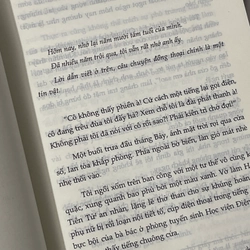 Hôm nay, nhớ lại năm mười lăm tuổi của mình.
Đã nhiều năm trôi qua, tôi vẫn rất nhớ anh ấy.
Lời dẫn viết ở trên, câu chuyện đồng thoại chính là một
tín vật.
"Cô không thấy phiền à! Cứ cách một tiếng lại gọi điện,
cô đang trêu đùa tôi đấy hả? Xem chỗ tôi là đài phát thanh à!
Không phải tôi đã nói với cô rồi sao?! Phải kiên trì chờ đợi!"
Một buổi trưa đầu tháng Bảy, ánh mặt trời rọi qua cửa
sổ, lan tỏa khắp phòng. Phía ngoài bờ biển, làn gió mát
nhẹ thổi vào.
Tôi ngồi xổm trên ban công với một tư thế vô cùng
quặc, xung quanh bao phủ bởi một màu xanh. Vò lầm
Tiên Tử" an nhàn, lặng lẽ thở than cho sự khủng hoảng
phụ nữ bị rối loạn nội tiết tố, cúp điện thoại trong
bực bội của bà bác ở phòng tuyển sinh Học viện Điện
thấy tiếng chuông cửa.